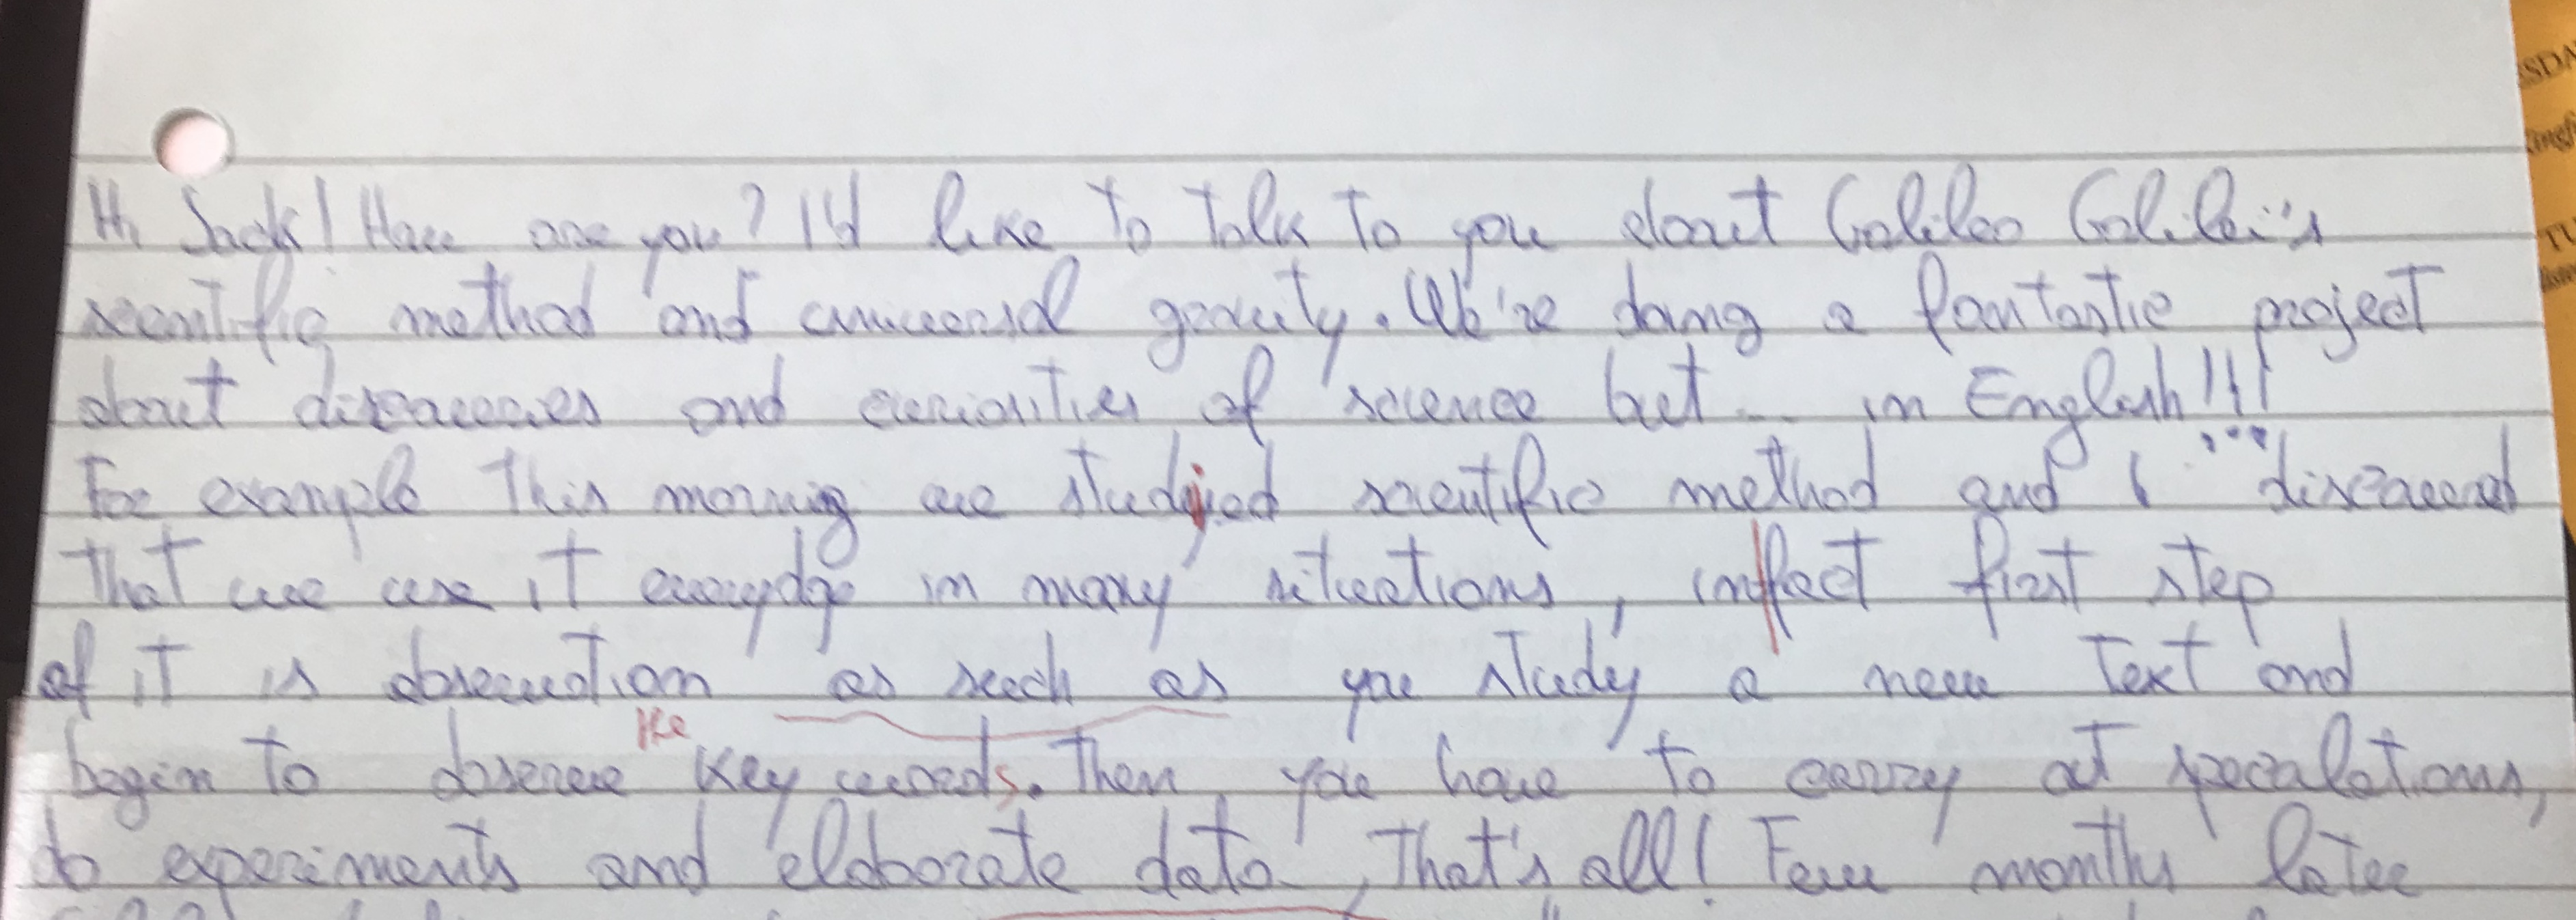 Hi Jack! How are you? I'd like to talk to you about Galileo Galilei's
scientific method and universal gravity. We're doing a fantastic project
about discoveries and curiosities of science but... in English!!!
For example this morning we studied scientific method and I discovered
that we use it everyday in many situations, infact first step
of it is observation as such as you study a new text and
begin to observe the key words. Then you have to carry out specalations,
do experiments and elaborate data, that's all! Few months later